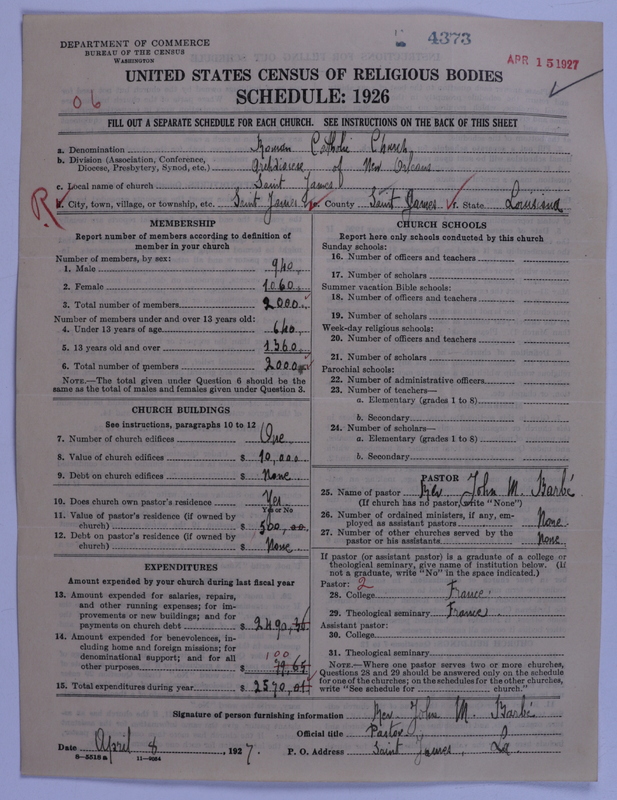 4373
APR 15 1927
DEPARTMENT OF COMMERCE
BUREAU OF THE CENSUS
WASHINGTON
UNITED STATES CENSUS OF RELIGIOUS BODIES
SCHEDULE: 1926
06
FILL OUT A SEPARATE SCHEDULE FOR EACH CHURCH. SEE INSTRUCTIONS ON THE BACK OF THIS SHEET
a. Denomination Roman Catholic Church
b. Division (Association, Conference, Diocese, Presbytery, Synod, etc.) Archdiocese of New Orleans
c. Local name of church Saint James
R
City, town, village, or township, etc. Saint James County Saint James f. State Louisiana
MEMBERSHIP
Report number of members according to definition of
member in your church
Number of members, by sex:
1. Male 940
2. Female 1060
3. Total number of members 2000
Number of members under and over 13 years old:
4. Under 13 years of age 640
5. 13 years old and over 1360
6. Total number of members 2000
NOTE.—The total given under Question 6 should be the
same as the total of males and females given under Question 3.
CHURCH BUILDINGS
See instructions, paragraphs 10 to 12
7. Number of church edifices One
8. Value of church edifices $ 10,000
9. Debt on church edifices $ None
10. Does church own pastor's residence Yes
Yes or No
11. Value of pastor's residence (if owned by
church) $ 500,00
12. Debt on pastor's residence (if owned by
church) $ None
EXPENDITURES
Amount expended by your church during last fiscal year
13. Amount expended for salaries, repairs,
and other running expenses; for im-
provements or new buildings; and for
payments on church debt $ 2490,36
14. Amount expended for benevolences, in-
cluding home and foreign missions; for
denominational support; and for all
other purposes $ 79,65
100
15. Total expenditures during year $ 2570,01
CHURCH SCHOOLS
Report here only schools conducted by this church
Sunday schools:
16. Number of officers and teachers
17. Number of scholars
Summer vacation Bible schools:
18. Number of officers and teachers
19. Number of scholars
Week-day religious schools:
20. Number of officers and teachers
21. Number of scholars
Parochial schools:
22. Number of administrative officers
23. Number of teachers—
a. Elementary (grades 1 to 8)
b. Secondary
24. Number of scholars—
a. Elementary (grades 1 to 8)
b. Secondary
PASTOR
25. Name of pastor Rev John M. Barbé
(If church has no pastor, write "None")
26. Number of ordained ministers, if any, em-
ployed as assistant pastors None
27. Number of other churches served by the
pastor or his assistants None
If pastor (or assistant pastor) is a graduate of a college or
theological seminary, give name of institution below. (If
not a graduate, write "No" in the space indicated.)
Pastor: 2
28. College France
29. Theological seminary France
Assistant pastor:
30. College
31. Theological seminary
NOTE.—Where one pastor serves two or more churches,
Questions 28 and 29 should be answered only on the schedule
for one of the churches; on the schedules for the other churches,
write "See schedule for church."
Signature of person furnishing information Rev John M. Barbé
Official title Pastor
Date April 8, 1927. P. O. Address Saint James, La
8—5518a 11—9084